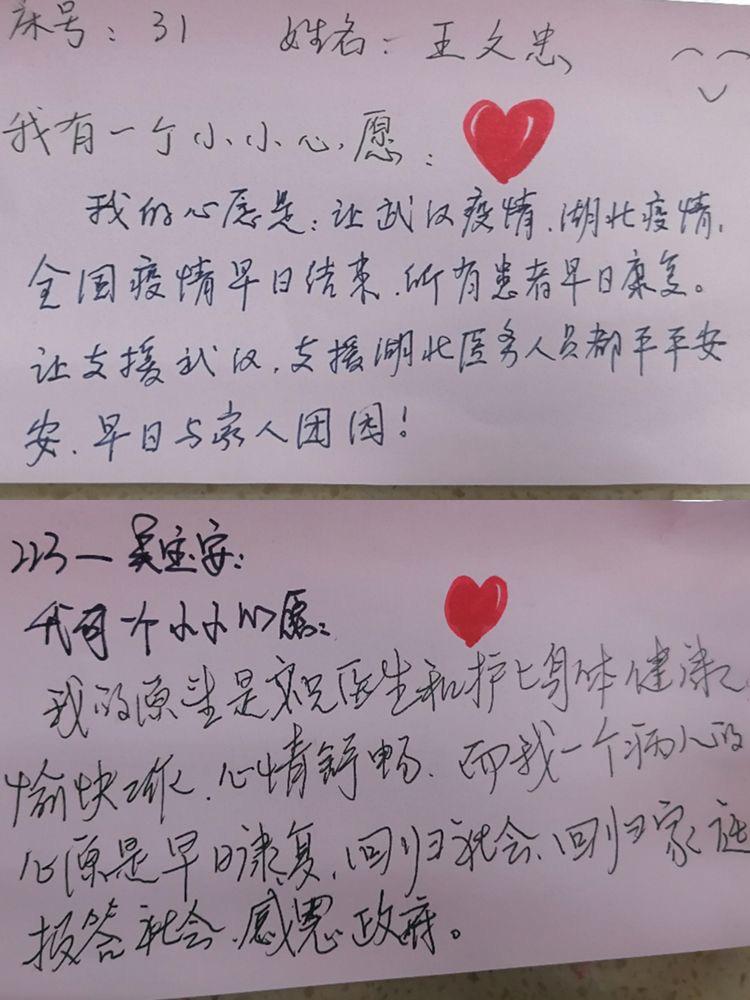 床号：31 姓名：王文忠
我有一个小小心愿：
我的心愿是：让武汉疫情、湖北疫情、
全国疫情早日结束、所有患者早日康复。
让支援武汉、支援湖北医务人员都平平安
安、早日与家人团圆！
223—吴宝安：
我有一个小小心愿：
我的原望是祝医生和护士身体健康、
愉快工作、心情舒畅、而我一个病人的
心原是早日康复、回归社会、回归家庭
报答社会、感恩政府。